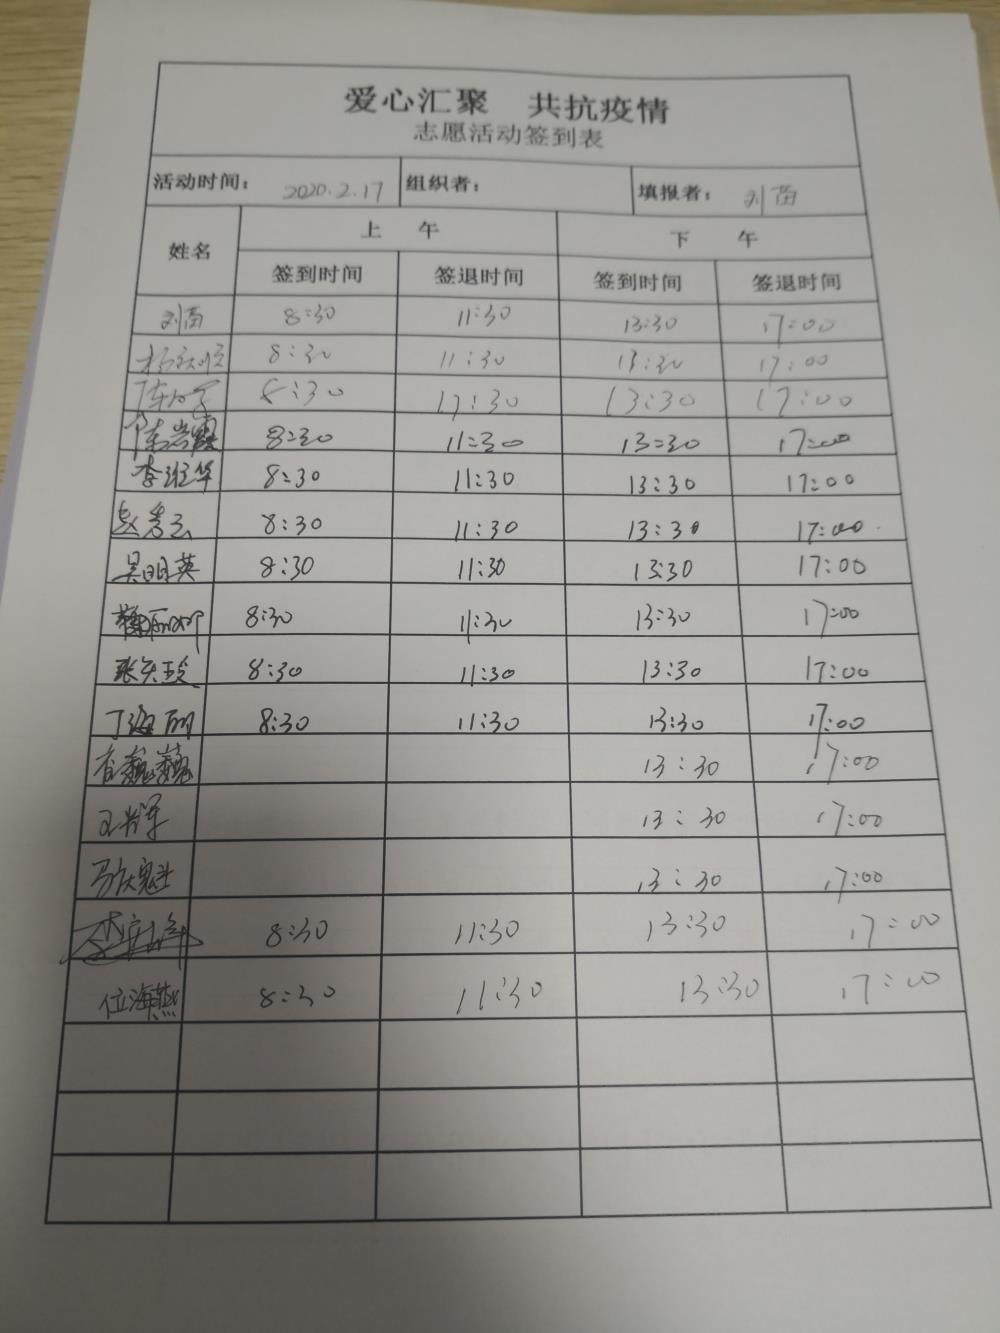 爱心汇聚 共抗疫情
志愿活动签到表
活动时间： 2020.2.17 组织者： 填报者： 刘苗
姓名 上 午 下 午
签到时间 签退时间 签到时间 签退时间
刘苗 8:30 11:30 13:30 17:00
8:30 11:30 13:30 17:00
8:30 17:30 13:30 17:00
陈岩霞 8:30 11:30 13:30 17:00
李班华 8:30 11:30 13:30 17:00
赵秀云 8:30 11:30 13:30 17:00
吴明英 8:30 11:30 13:30 17:00
8:30 11:30 13:30 17:00
8:30 11:30 13:30 17:00
丁海丽 8:30 11:30 13:30 17:00
13:30 17:00
13:30 17:00
13:30 17:00
8:30 11:30 13:30 17:00
位海燕 8:30 11:30 13:30 17:00